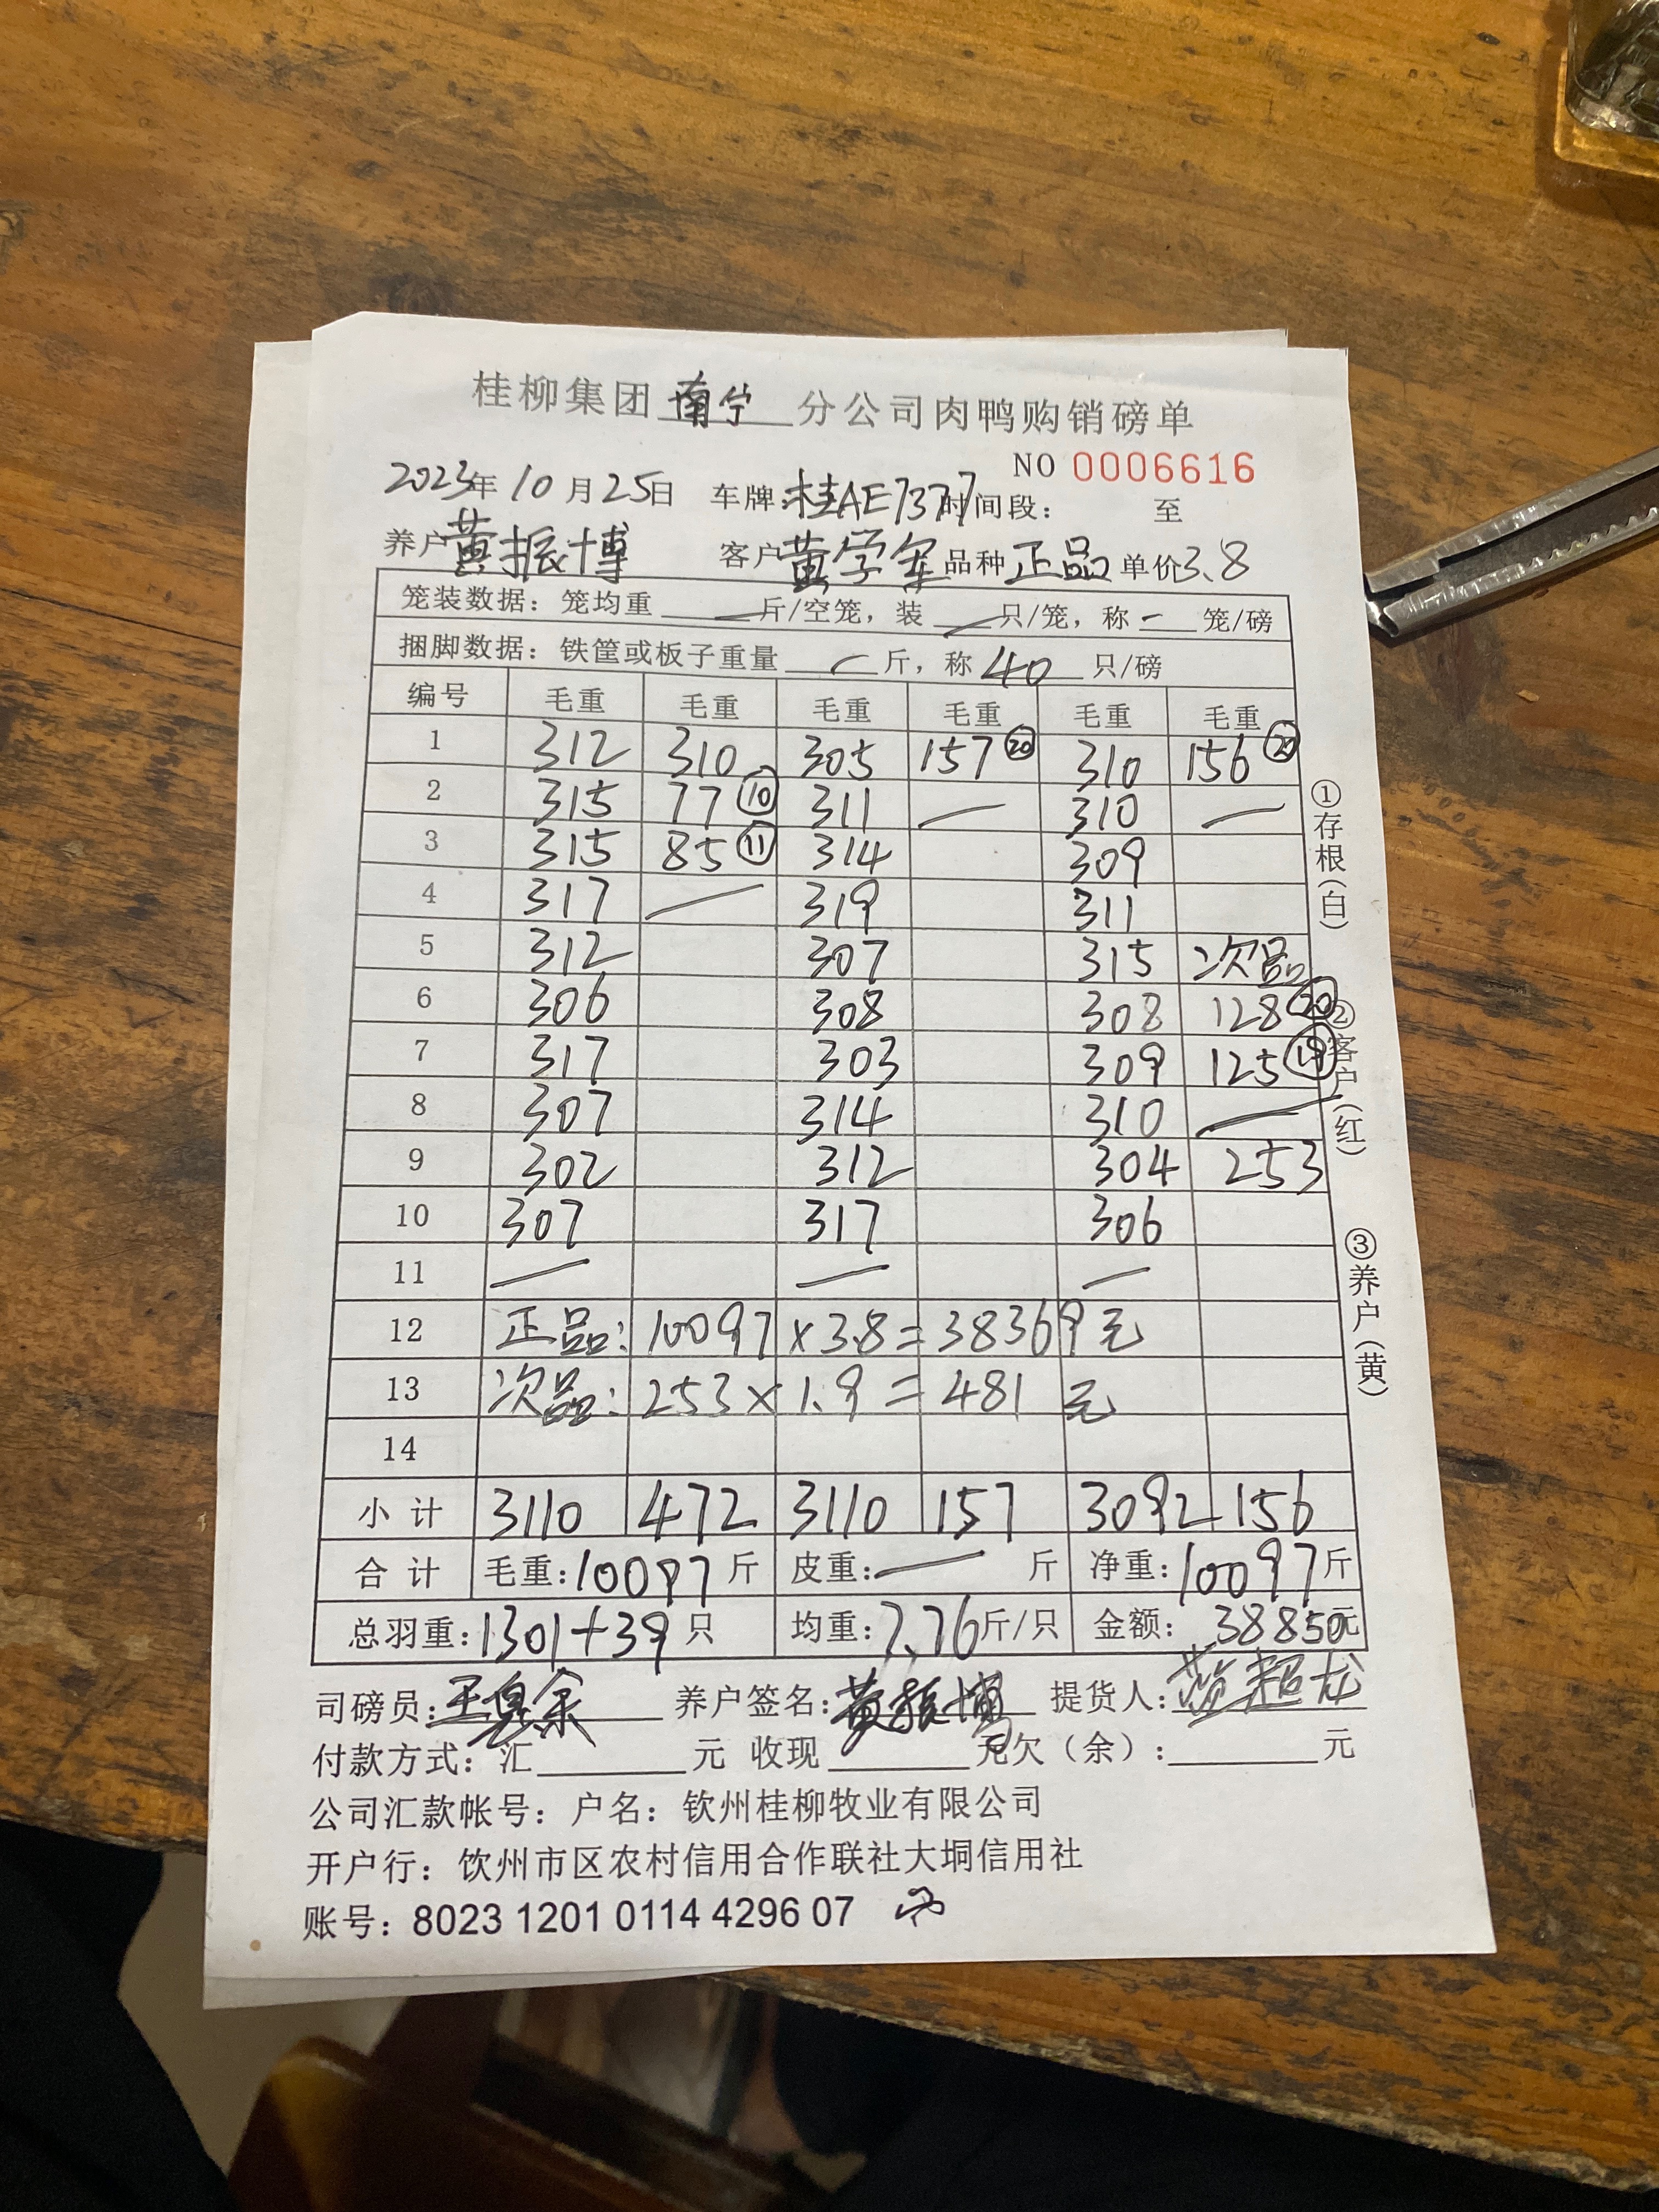 桂柳集团 南宁 分公司肉鸭购销磅单
NO 0006616
2023年 10 月 25日 车牌:桂AE7377 时间段: 至
养户 黄振博 客户 黄学军 品种 正品 单价 3.8
笼装数据: 笼均重 — 斤/空笼, 装 — 只/笼, 称 — 笼/磅
捆脚数据: 铁筐或板子重量 — 斤, 称 40 只/磅
编号 毛重 毛重 毛重 毛重 毛重 毛重
1 312 310 305 157 ⑳ 310 156 ⑳
2 315 77 ⑩ 311 — 310 —
3 315 85 ⑪ 314 309
4 317 — 319 311
5 312 307 315 次品
6 306 308 308 128 ⑳
7 317 303 309 125 ⑲
8 307 314 310 —
9 302 312 304 253
10 307 317 306
11 — — —
12 正品: 10097 × 3.8 = 38369 元
13 次品: 253 × 1.9 = 481 元
14
小计 3110 472 3110 157 3092 156
合计 毛重: 10097 斤 皮重: — 斤 净重: 10097 斤
总羽重: 1301+39 只 均重: 7.76 斤/只 金额: 38850元
①存根(白)
②客户(红)
③养户(黄)
司磅员: 养户签名: 黄振博 提货人:
付款方式: 汇 元 收现 元 欠(余): 元
公司汇款帐号: 户名: 钦州桂柳牧业有限公司
开户行: 钦州市区农村信用合作联社大垌信用社
账号: 8023 1201 0114 4296 07